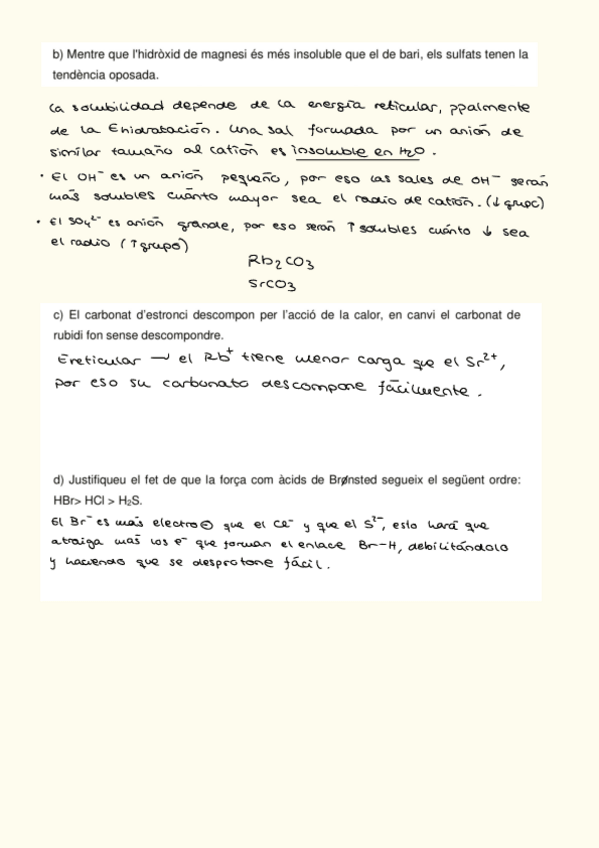 b) Mentre que l'hidròxid de magnesi és més insoluble que el de bari, els sulfats tenen la
tendència oposada.
La solubilidad depende de la energía reticular, ppalmente
de la Ehidratación. Una sal formada por un anión de
similar tamaño al catión es insoluble en H₂O.
• El OH⁻ es un anión pequeño, por eso las sales de OH⁻ serán
más solubles cuánto mayor sea el radio de catión. (↓ grupo)
• El SO₄²⁻ es anión grande, por eso serán ↑ solubles cuánto ↓ sea
el radio (↑ grupo)
Rb₂CO₃
SrCO₃
c) El carbonat d'estronci descompon per l'acció de la calor, en canvi el carbonat de
rubidi fon sense descompondre.
Ereticular → el Rb⁺ tiene menor carga que el Sr²⁺,
por eso su carbonato descompone fácilmente.
d) Justifiqueu el fet de que la força com àcids de Brønsted segueix el següent ordre:
HBr> HCl > H₂S.
El Br⁻ es más electro⊖ que el Cl⁻ y que el S²⁻, esto hará que
atraiga más los e⁻ que forman el enlace Br–H, debilitándolo
y haciendo que se desprotone fácil.